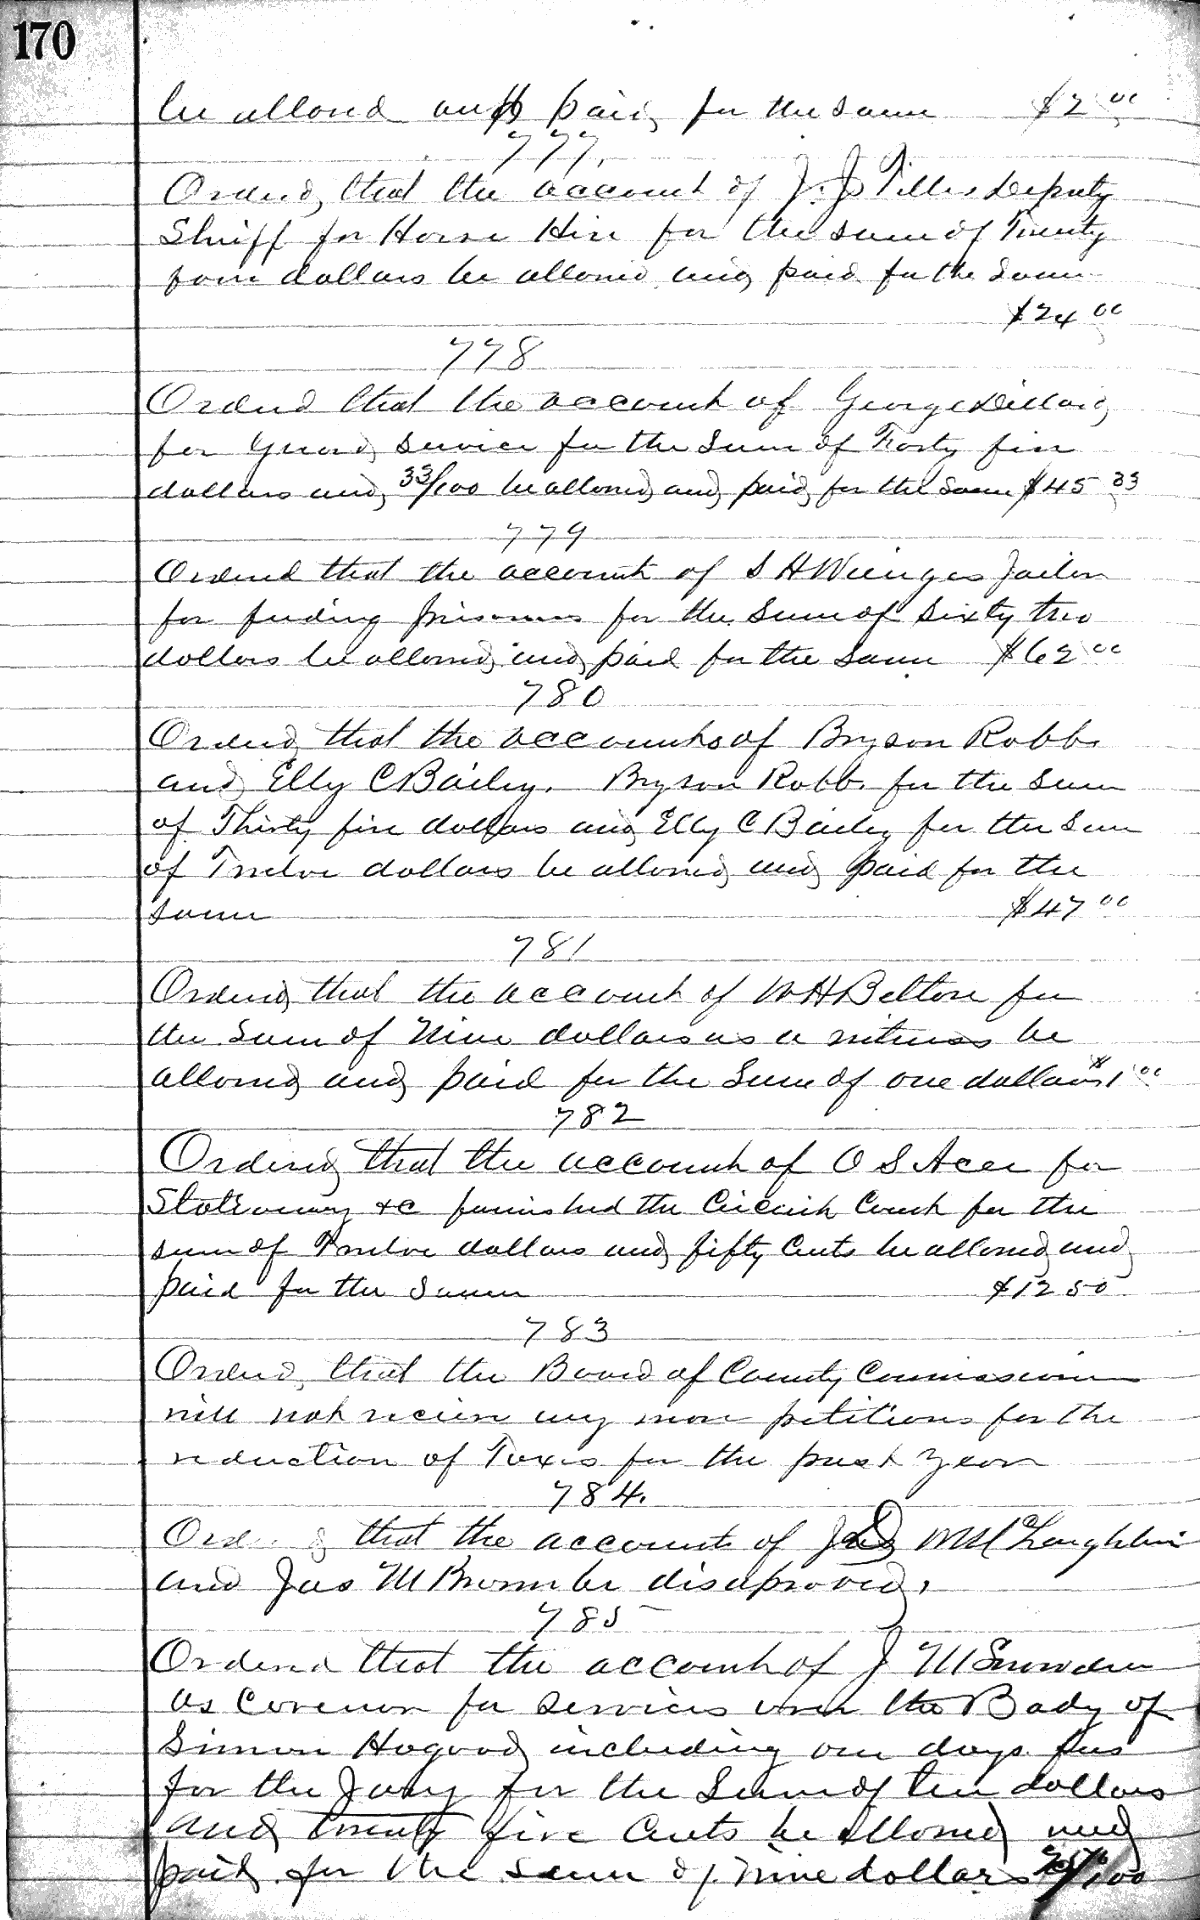 170
be allowed and paid for the same $2 00
777.
Ordered that the account of J. J. Tillis Deputy
Sheriff for Horse Hire for the sum of Twenty
four dollars be allowed and paid for the same
$24 00
778
Ordered that the account of George Dillard
for Guard Service for the Sum of Forty five
dollars and 33/100 be allowed and paid for the same $45 33
779
Ordered that the account of S H Jailor
for feeding prisoners for the Sum of Sixty two
dollars be allowed and paid for the same $62 00
780
Ordered that the accounts of Bryson Robb
and Elly C Bailey. Bryson Robb for the sum
of Thirty five dollars and Elly C Bailey for the sum
of Twelve dollars be allowed and paid for the
same $47 00
781
Ordered that the account of W H Belton for
the sum of Nine dollars as a witness be
allowed and paid for the Sum of one dollar $1 00
782
Ordered that the account of O S Acee for
Stationary &c furnished the Circuit Court for the
sum of Twelve dollars and fifty cents be allowed and
paid for the same $12 50
783
Ordered that the Board of County Commissioners
will not recieve any more petitions for the
reduction of Taxes for the past year
784.
Ordered that the account of W McLaughlin
and Jas M Brown be disaproved.
785
Ordered that the account of J M Snowden
as Coroner for services over the Body of
Simon Hagood including one days fees
for the Jury for the Sum of ten dollars
and twenty five cents be allowed and
paid for the sum of nine dollars /100